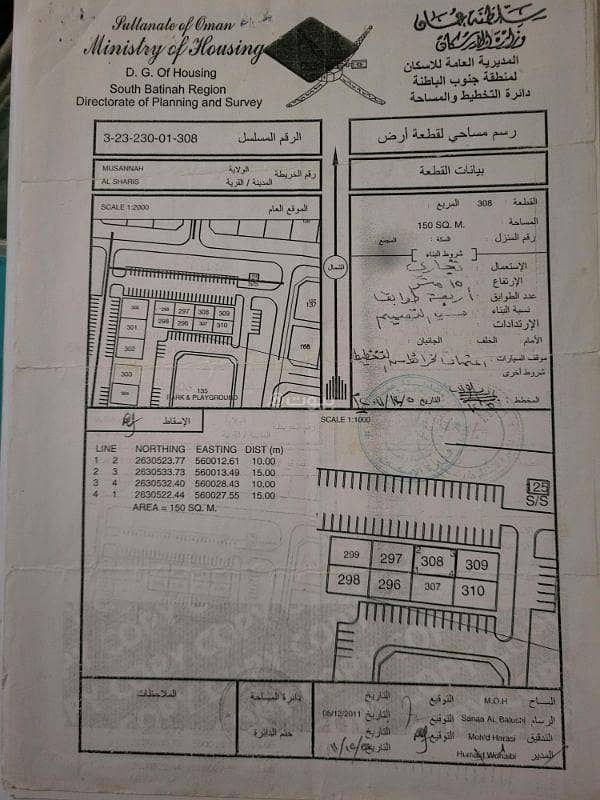 Sultanate of Oman
Ministry of Housing
D. G. Of Housing
South Batinah Region
Directorate of Planning and Survey
سلطنة عمان
وزارة الإسكان
المديرية العامة للاسكان
لمنطقة جنوب الباطنة
دائرة التخطيط والمساحة
3-23-230-01-308 الرقم المسلسل
رسم مساحي لقطعة أرض
MUSANNAH الولاية
AL SHARIS المدينة / القرية
رقم الخريطة
بيانات القطعة
SCALE 1:2000 الموقع العام
القطعة : 308 المربع :
المساحة : 150 SQ. M.
رقم المنزل : السكة : المجمع
شروط البناء
الإستعمال : تجاري
الإرتفاع : ١٥ متر
عدد الطوابق : أربعة طوابق
نسبة البناء :
الإرتدادات
الأمام : الخلف الجانبان
موقف السيارات :
شروط أخرى
المخطط : التاريخ
الشمال
301
302
303
297
308
309
298
296
307
310
137
135
PARK & PLAYGROUND
الإسقاط
SCALE 1:1000
LINE NORTHING EASTING DIST (m)
1 2 2630523.77 560012.61 10.00
2 3 2630533.73 560013.49 15.00
3 4 2630532.40 560028.43 10.00
4 1 2630522.44 560027.55 15.00
AREA = 150 SQ. M.
125
S/S
299 297 308 309
298 296 307 310
2 3
1 4
COPY COPY COPY
الملاحظات
دائرة المساحة
ختم الدائرة
المساح M.O.H التوقيع التاريخ
الرسام Sanaa AL Balushi التوقيع التاريخ 05/12/2011
التدقيق Moh'd Harasi التوقيع التاريخ
المدير Humaid Wohaibi